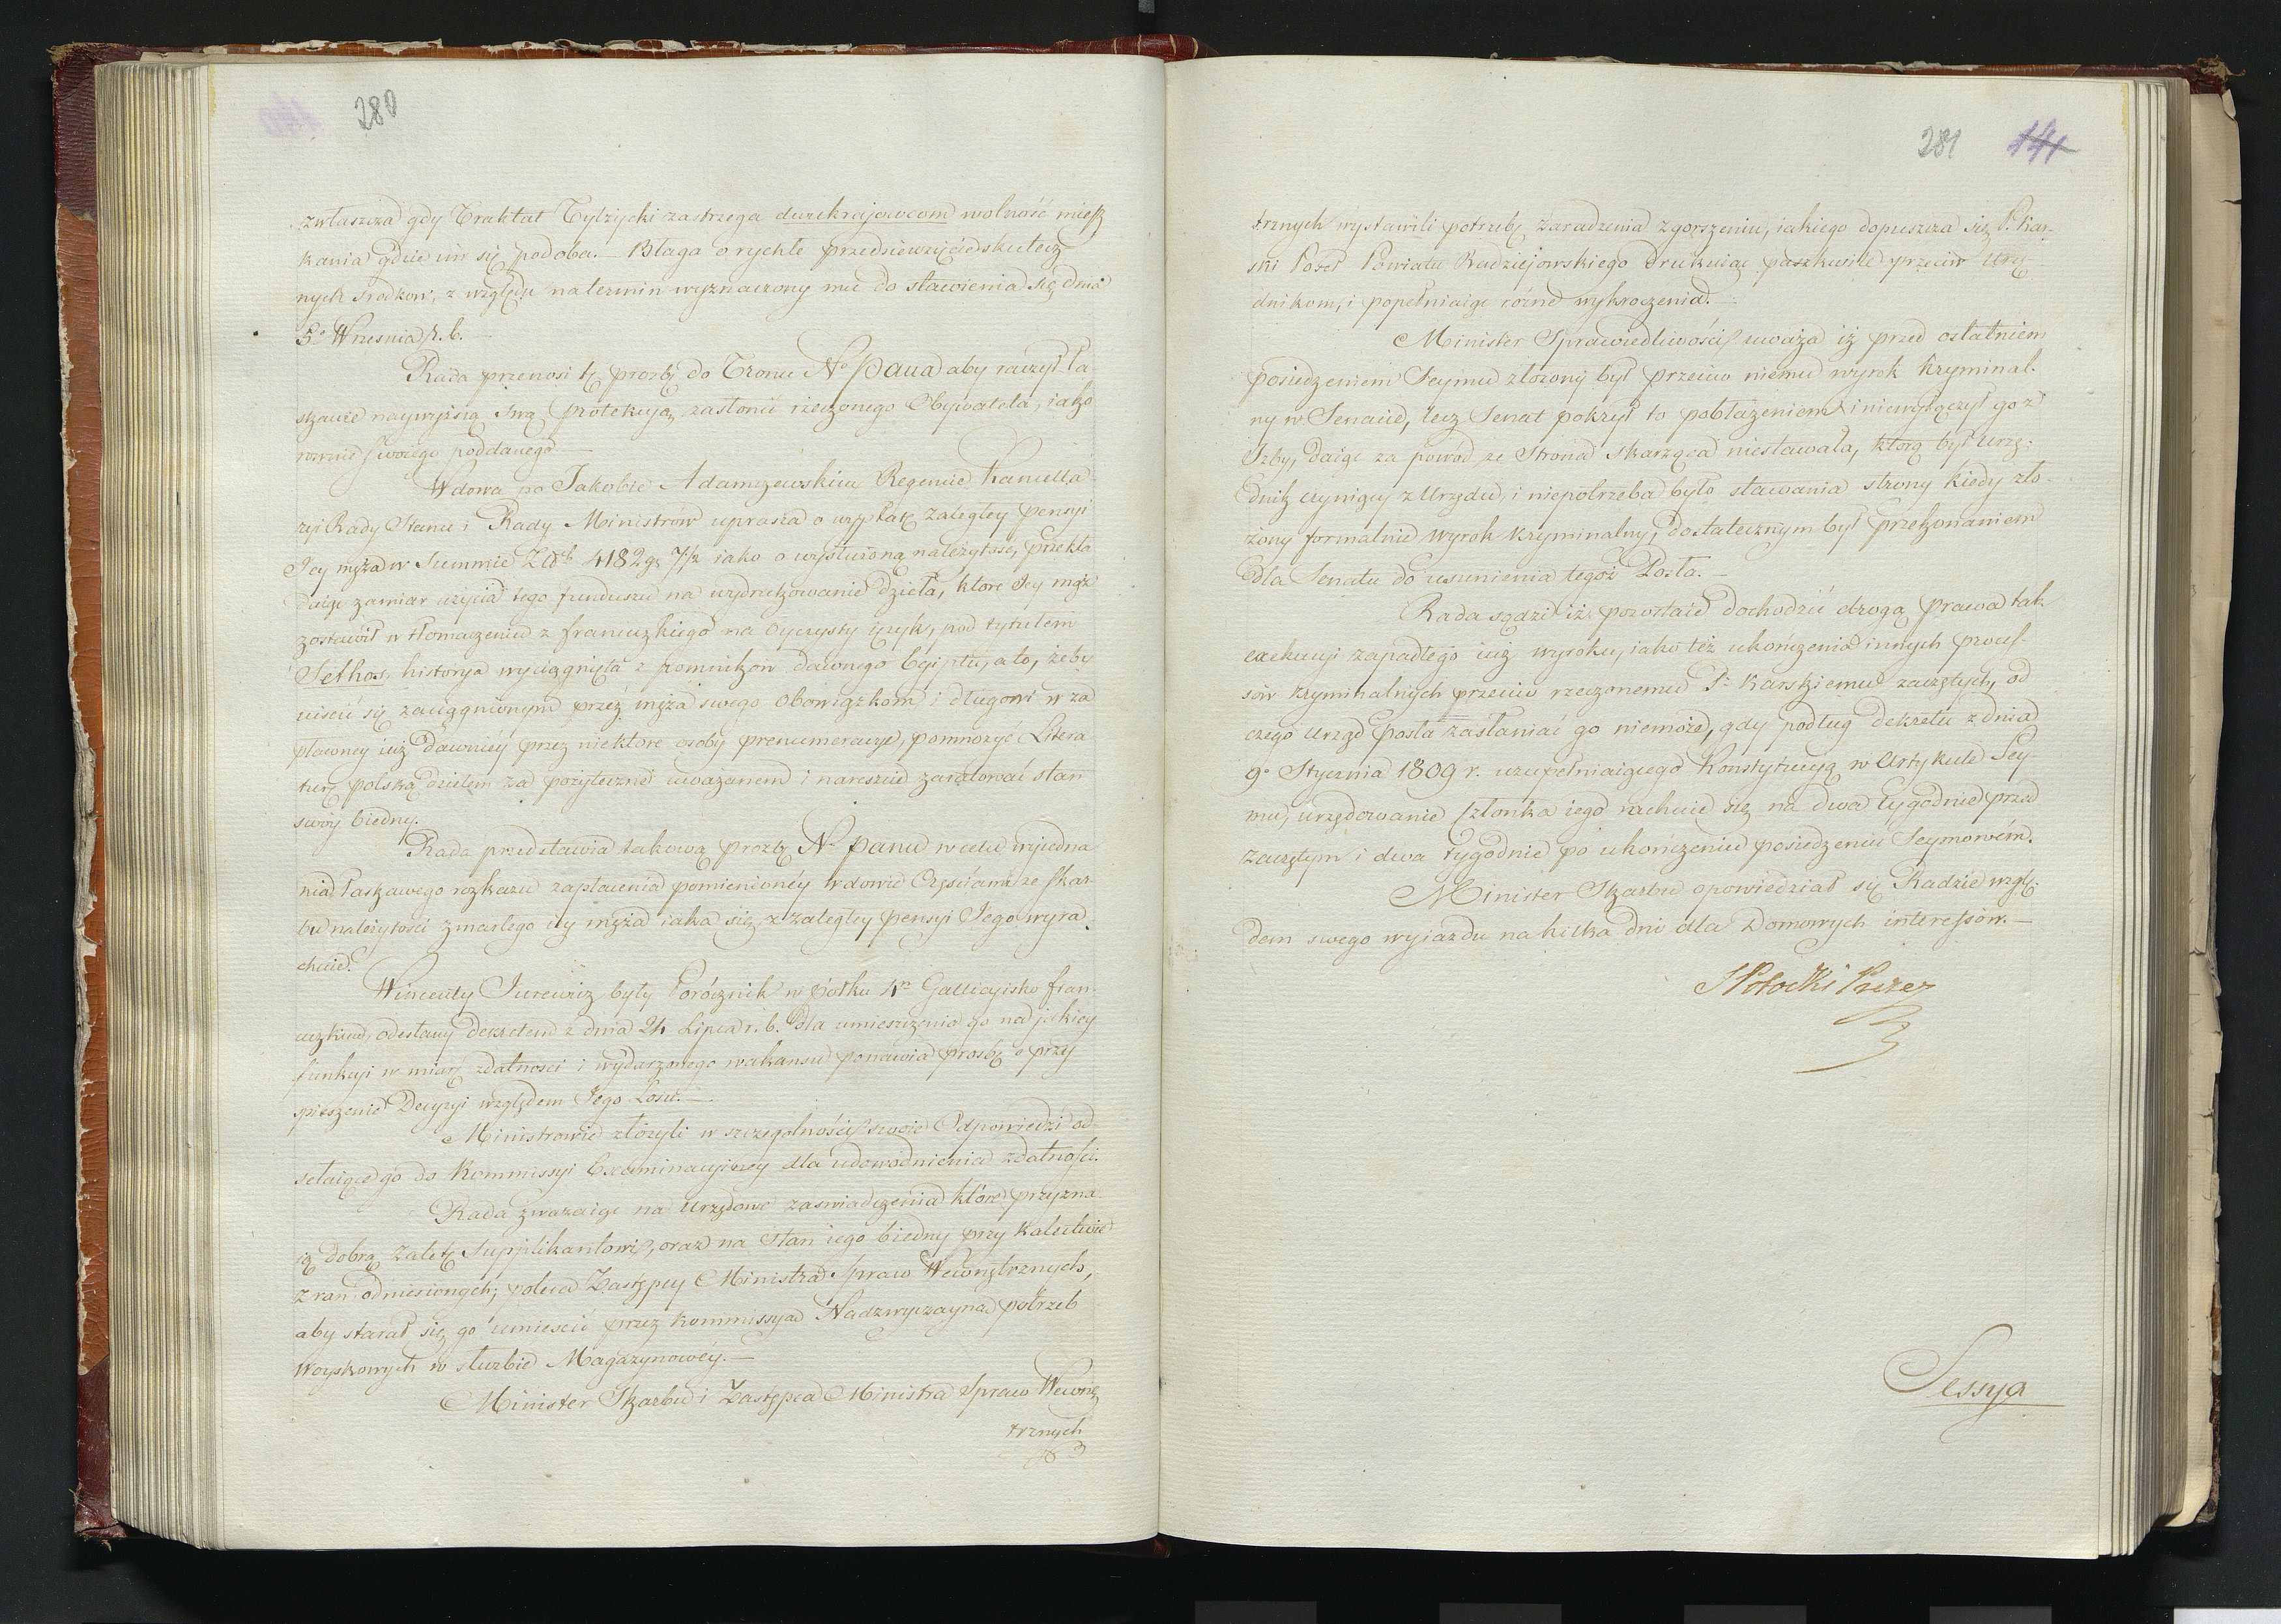 280
zwłaszcza gdy Traktat Tylzycki zastrzega dwukrajowcom wolność miesz
kania gdzie im się podoba. Błaga o rychłe przedsięwzięcie skutecz
nych srodkow, z względu na termin wyznaczony mu do stawienia się dnia
5o Wrzesnia r. b.
Rada przenosi tę prozbę do Tronu No Pana aby raczył ła-
skawie naywyższą swą protekcyą zasłonić rzeczonego Obywatela, iako
rownie swoiego poddanego.
Wdowa po Jakobie Adamczewskim Regencie Kancella
ryi Rady Stanu i Rady Ministrow uprasza o wypłatę zaległey pensyi
Jey męża w Summie Złch 4182 gr 7/2 iako o wysłużoną należytosc, przekła
daiąc zamiar użycia tego funduszu na wydrukowanie dzieła, ktore Jey mąż
zostawił w tłomaczeniu z francuzkiego na oyczysty ięzyk, pod tytułem
Sethos, historya wyciągnięta z pomnikow dawnego Egiptu, a to, żeby
uiścić się zaciągnionym przez męża swego obowiązkom i długowi w za
płaconey iuż dawniéy przez niektore osoby prenumeracyi, pomnożyć Litera
turę polską dziełem za pożyteczne uważanem i nareszcie zaratować stan
swóy biedny.
Rada przedstawia takową prozbę No Panu w celu wyiedna
nia łaskawego rozkazu zapłacenia pomienionéy wdowie Częściami ze skar-
bu należytości zmarłego iéy męża iaka się z zaległey pensyi Jego wyra-
chuie.
Wincenty Jurewicz były Porócznik w półku 4m Gallicyisko fran-
cuzkim, odesłany dekretem z dnia 24 Lipca r. b. dla umieszczenia go na jakiey
funkcyi w miarę zdatnosci i wydarzonego wakansu ponawia prosbę o przy
spieszenie Decyzyi względem Jego Losu. —
Ministrowie złożyli w szczególności swoie Odpowiedzi od
syłaiące go do Kommissyi Examinacyiney dla udowodnienia zdatności.
Rada zważaiąc na urzędowe zaswiadczenia które przyzna
ią dobrą zaletę Supplikantowi, oraz na stan iego biedny przy kalectwie
z ran odniesionych; poleca Zastępcy Ministra Spraw Wewnętrznych,
aby starał się go umieścić przez Kommissyą Nadzwyczayną potrzeb
Woyskowych w służbie Magazynowéy. —
Minister Skarbu i Zastępca Ministra Spraw Wewnę
trznych
281 141
trznych wystawili potrzebę zaradzenia zgorszeniu, iakiego dopuszcza się P. Kar-
ski Poseł Powiatu Radziejowskiego drukuiąc paszkwile przeciw Urzę
dnikom, i popełniaiąc różne wykroczenia.
Minister Sprawiedliwości uważa iż przed ostatniem
posiedzeniem Seymu złożony był przeciw niemu wyrok kryminal-
ny w Senacie, lecz Senat pokrył to pobłażeniem i niewyłączył go z
Izby, daiąc za powód że Strona skarżąca niestawała, którą był urzę-
dnik czyniący z Urzędu, i niepotrzeba było stawania strony kiedy zło-
żony formalnie wyrok kryminalny, dostatecznym był przekonaniem
dla Senatu do usunienia tegoż Posła. —
Rada sądzi iż pozostaie dochodzić drogą prawa tak
exekucyi zapadłego iuż wyroku, iako też ukończenia innych proces-
sów kryminalnych przeciw rzeczonemu P. Karskiemu zaczętych, od
czego urząd posła zasłaniać go niemoże, gdy podług dekretu z dnia
9o Stycznia 1809 r. uzupełniaiącego Konstytucyą w Artykule Sey-
mu, urzędowanie Członka iego rachuie się na dwa tygodnie przed
zaczętym i dwa tygodnie po ukończeniu posiedzeniu Seymowém.
Minister Skarbu opowiedział się Radzie wzglę-
dem swego wyiazdu na kilka dni dla Domowych interessów. —
S Potocki Prezes
Sessya